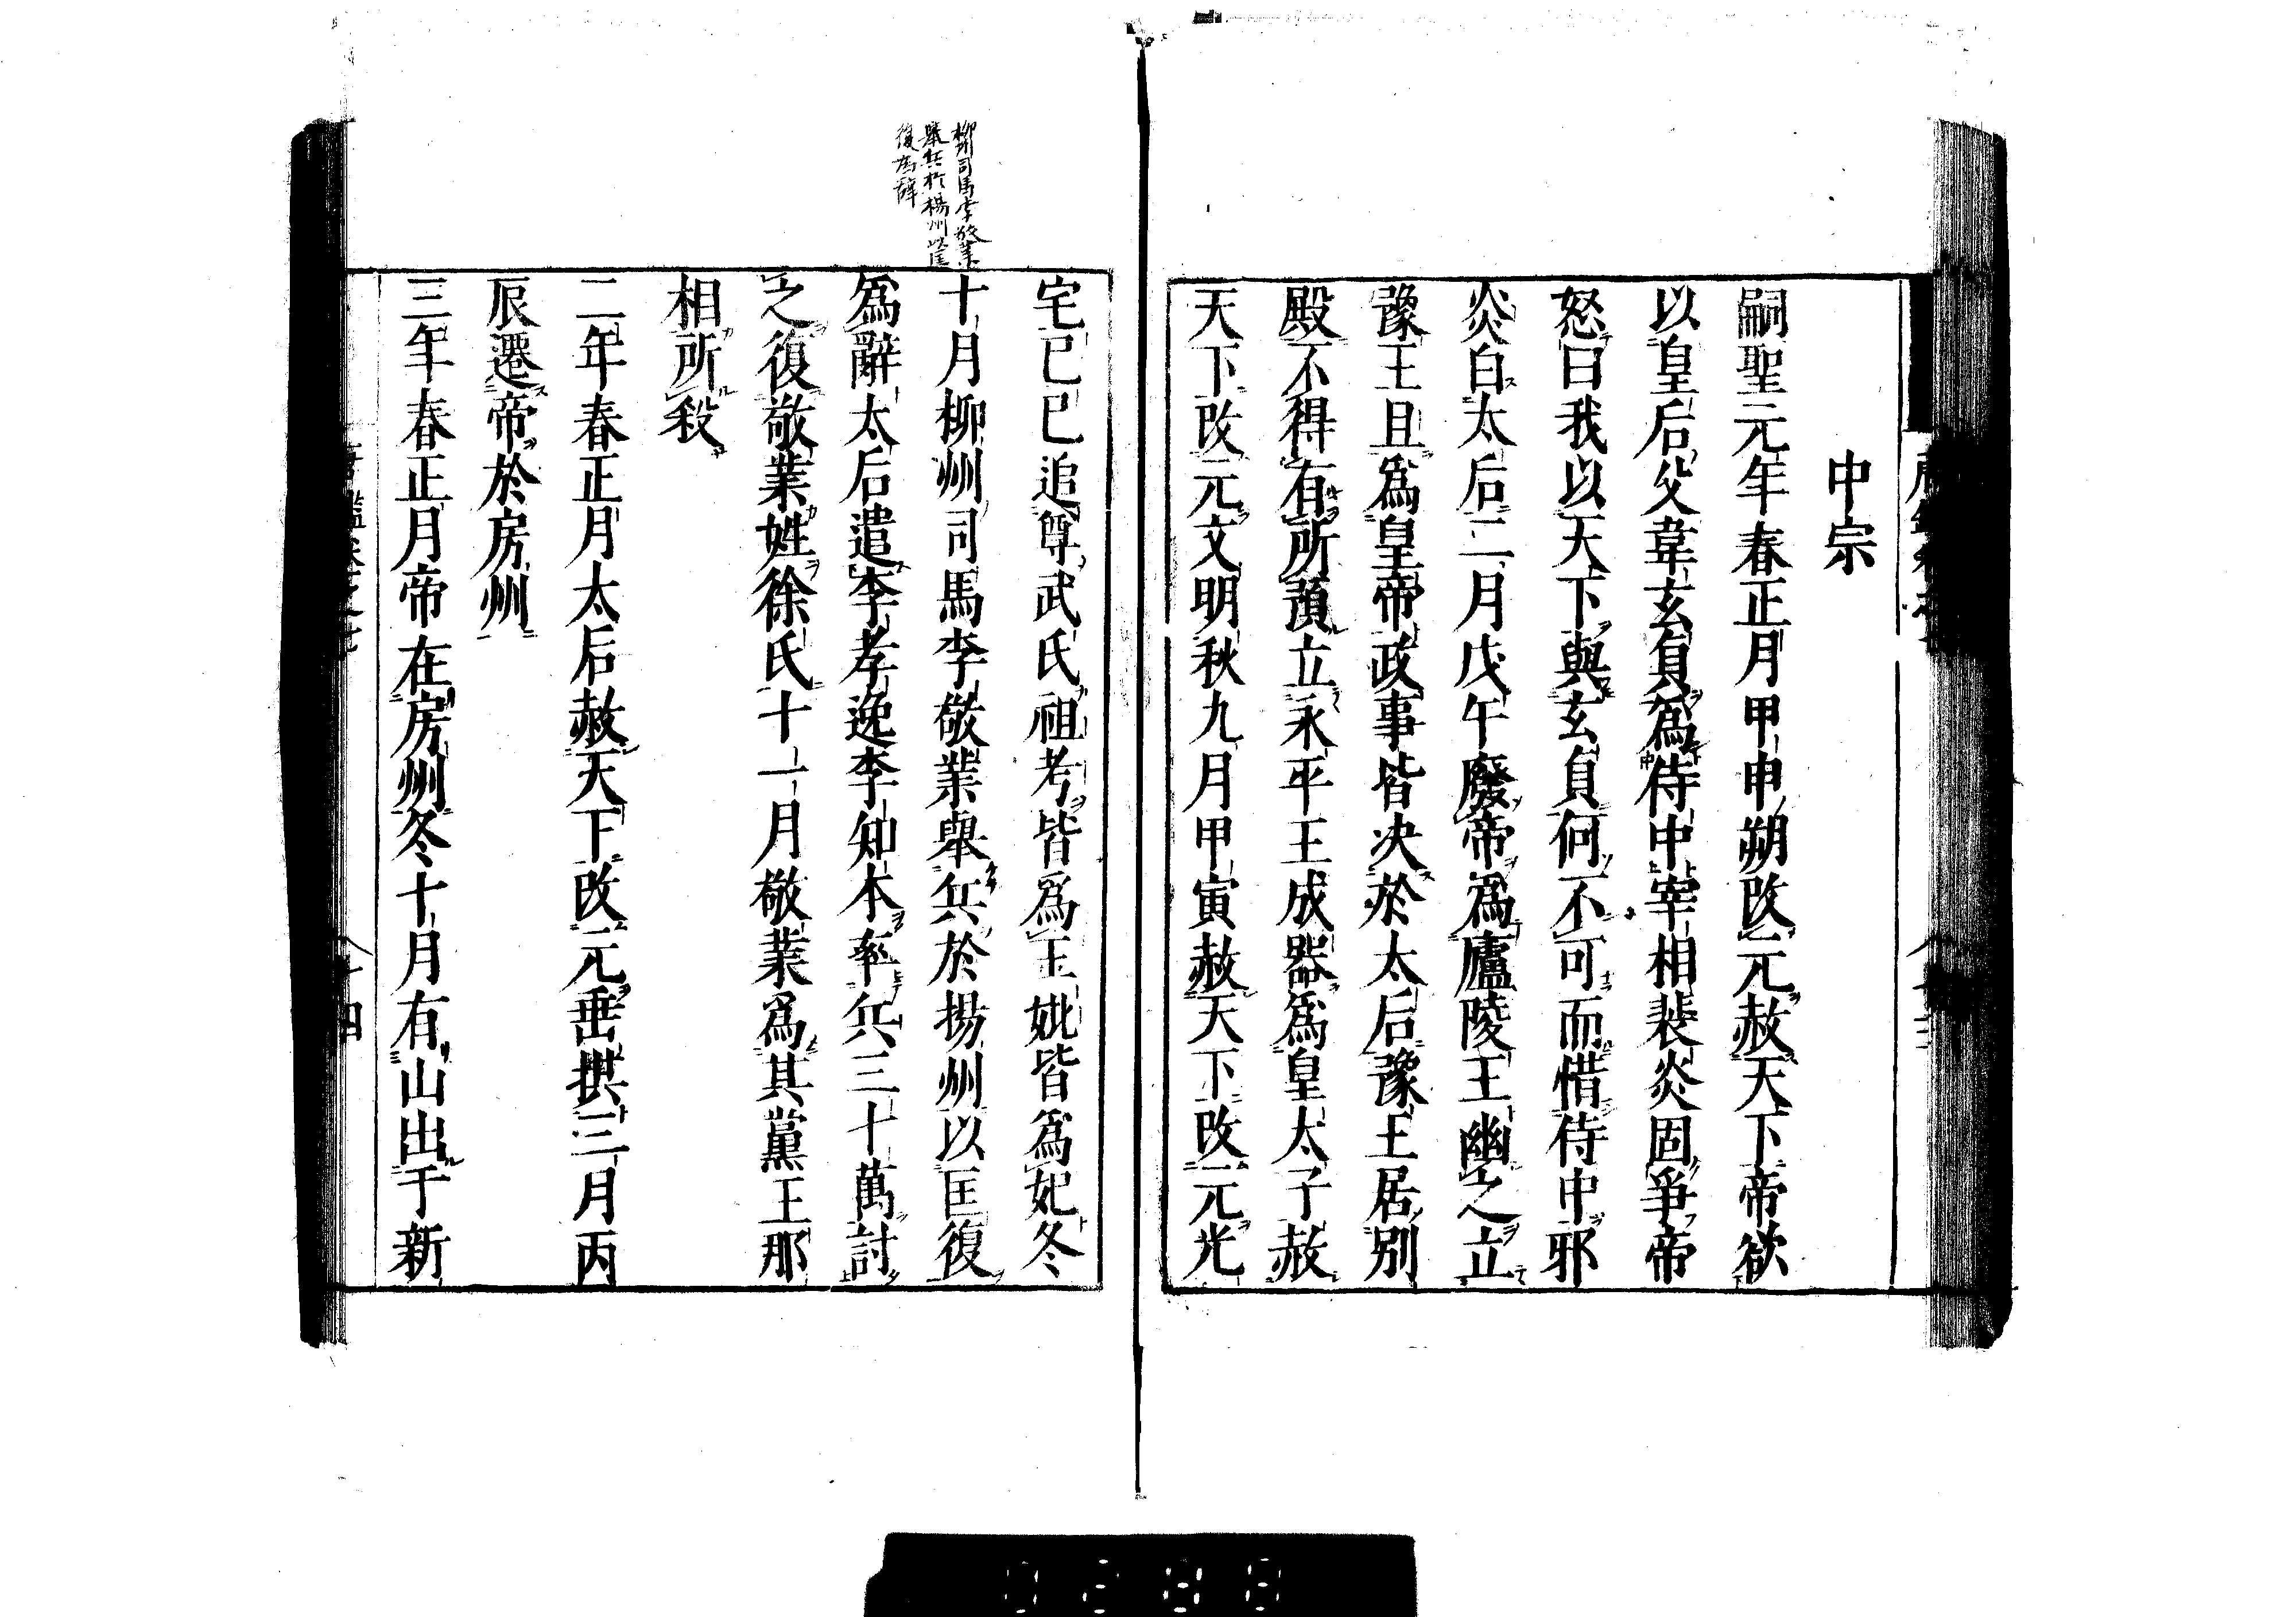 中宗
嗣聖元年春正月甲申朔改元赦天下帝欲
以皇后父韋玄貞爲侍中宰相裴炎固爭帝
怒曰我以天下與玄貞何不可而惜侍中邪
炎白太后二月戊午廢帝爲廬陵王幽之立
豫王旦爲皇帝政事皆決於太后豫王居別
殿不得有所預立永平王成器爲皇太子赦
天下改元文明秋九月甲寅赦天下改元光
宅己巳追尊武氏祖考皆爲王妣皆爲妃冬
十月柳州司馬李敬業舉兵於揚州以匡復
爲辭太后遣李孝逸李知本率兵三十萬討
之復敬業姓徐氏十一月敬業爲其黨王那
相所殺
二年春正月太后赦天下改元垂拱三月丙
辰遷帝於房州
三年春正月帝在房州冬十月有山出于新
柳州司馬李敬業
舉兵於楊州以匡
復爲辭